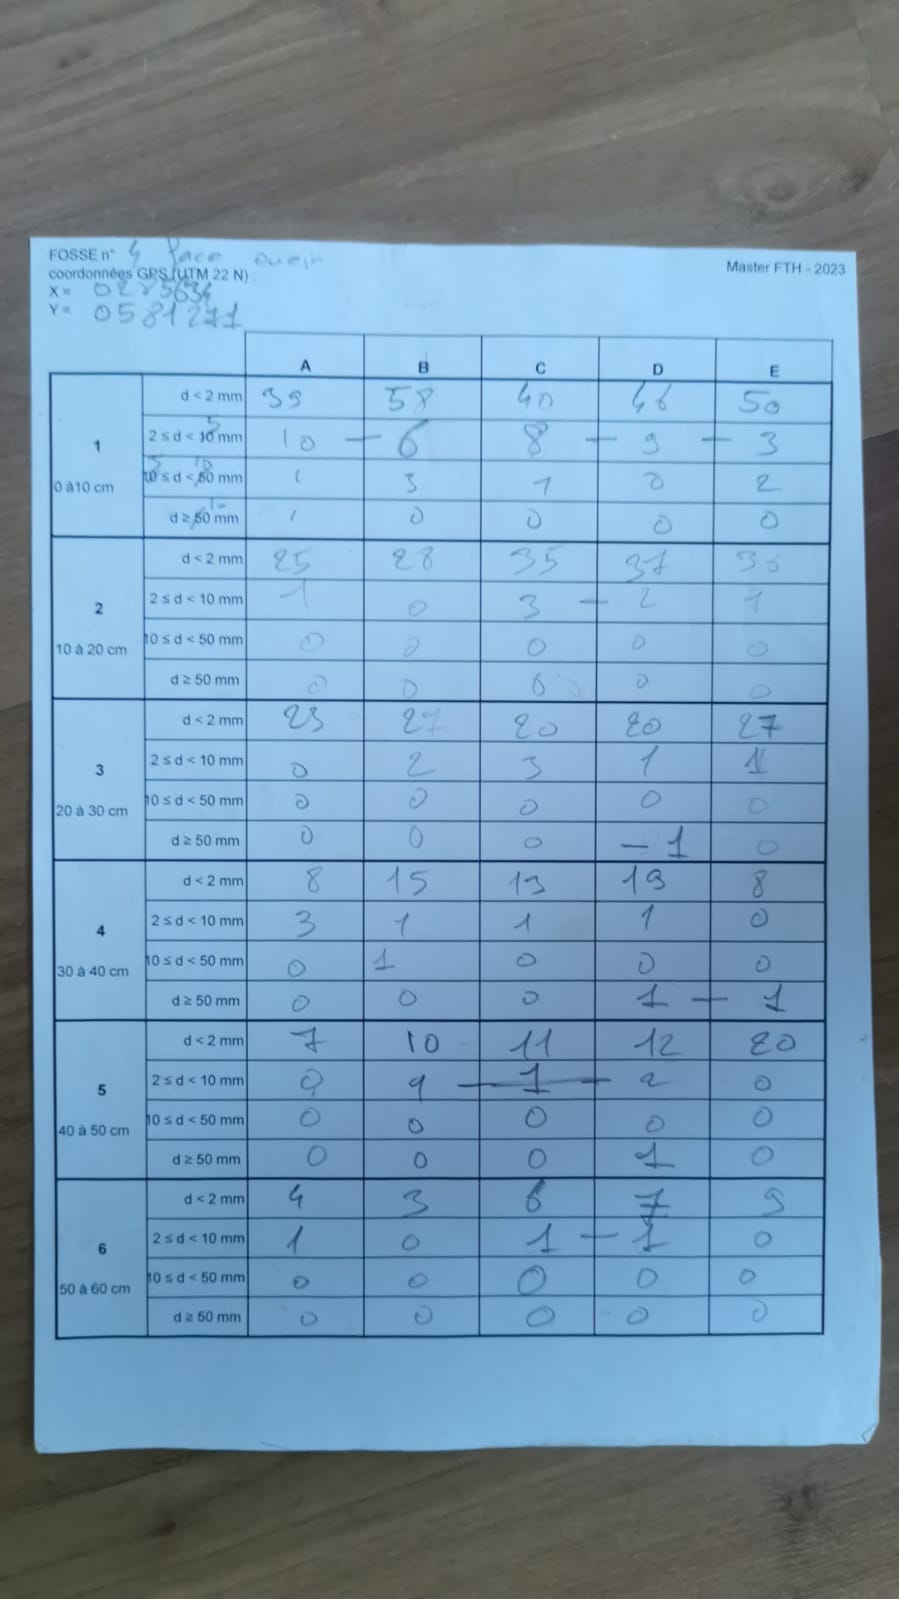 FOSSE n° 4 face ouest
Master FTH - 2023
coordonnées GPS (UTM 22 N) :
X = 0285634
Y = 0581271
A B C D E
1
0 à10 cm
d < 2 mm 39 58 40 46 50
2 ≤ d < 5 mm 10 — 6 8 — 9 — 3
5 ≤ d < 10 mm 1 3 1 0 2
d ≥ 10 mm 1 0 0 0 0
2
10 à 20 cm
d < 2 mm 25 28 35 37 36
2 ≤ d < 10 mm 1 0 3 — 2 1
10 ≤ d < 50 mm 0 0 0 0 0
d ≥ 50 mm 0 0 0 0 0
3
20 à 30 cm
d < 2 mm 23 27 20 20 27
2 ≤ d < 10 mm 0 2 3 1 1
10 ≤ d < 50 mm 0 0 0 0 0
d ≥ 50 mm 0 0 0 — 1 0
4
30 à 40 cm
d < 2 mm 8 15 13 19 8
2 ≤ d < 10 mm 3 1 1 1 0
10 ≤ d < 50 mm 0 1 0 0 0
d ≥ 50 mm 0 0 0 1 — 1
5
40 à 50 cm
d < 2 mm 7 10 11 12 20
2 ≤ d < 10 mm 0 1 — 1 — 2 0
10 ≤ d < 50 mm 0 0 0 0 0
d ≥ 50 mm 0 0 0 1 0
6
50 à 60 cm
d < 2 mm 4 3 6 7 9
2 ≤ d < 10 mm 1 0 1 — 1 0
10 ≤ d < 50 mm 0 0 0 0 0
d ≥ 50 mm 0 0 0 0 0